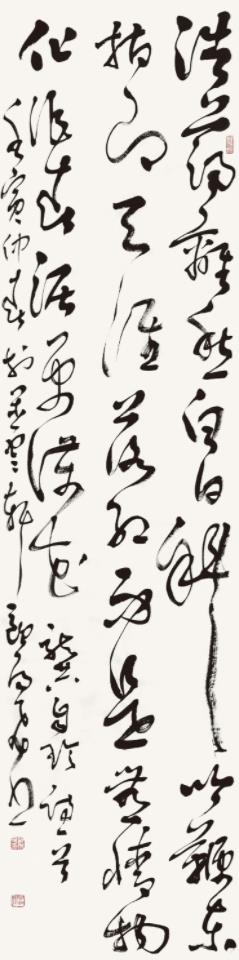 浩荡离愁白日斜吟鞭东
指即天涯落红不是无情物
化作春泥更护花 龚自珍诗一首
壬寅仲春